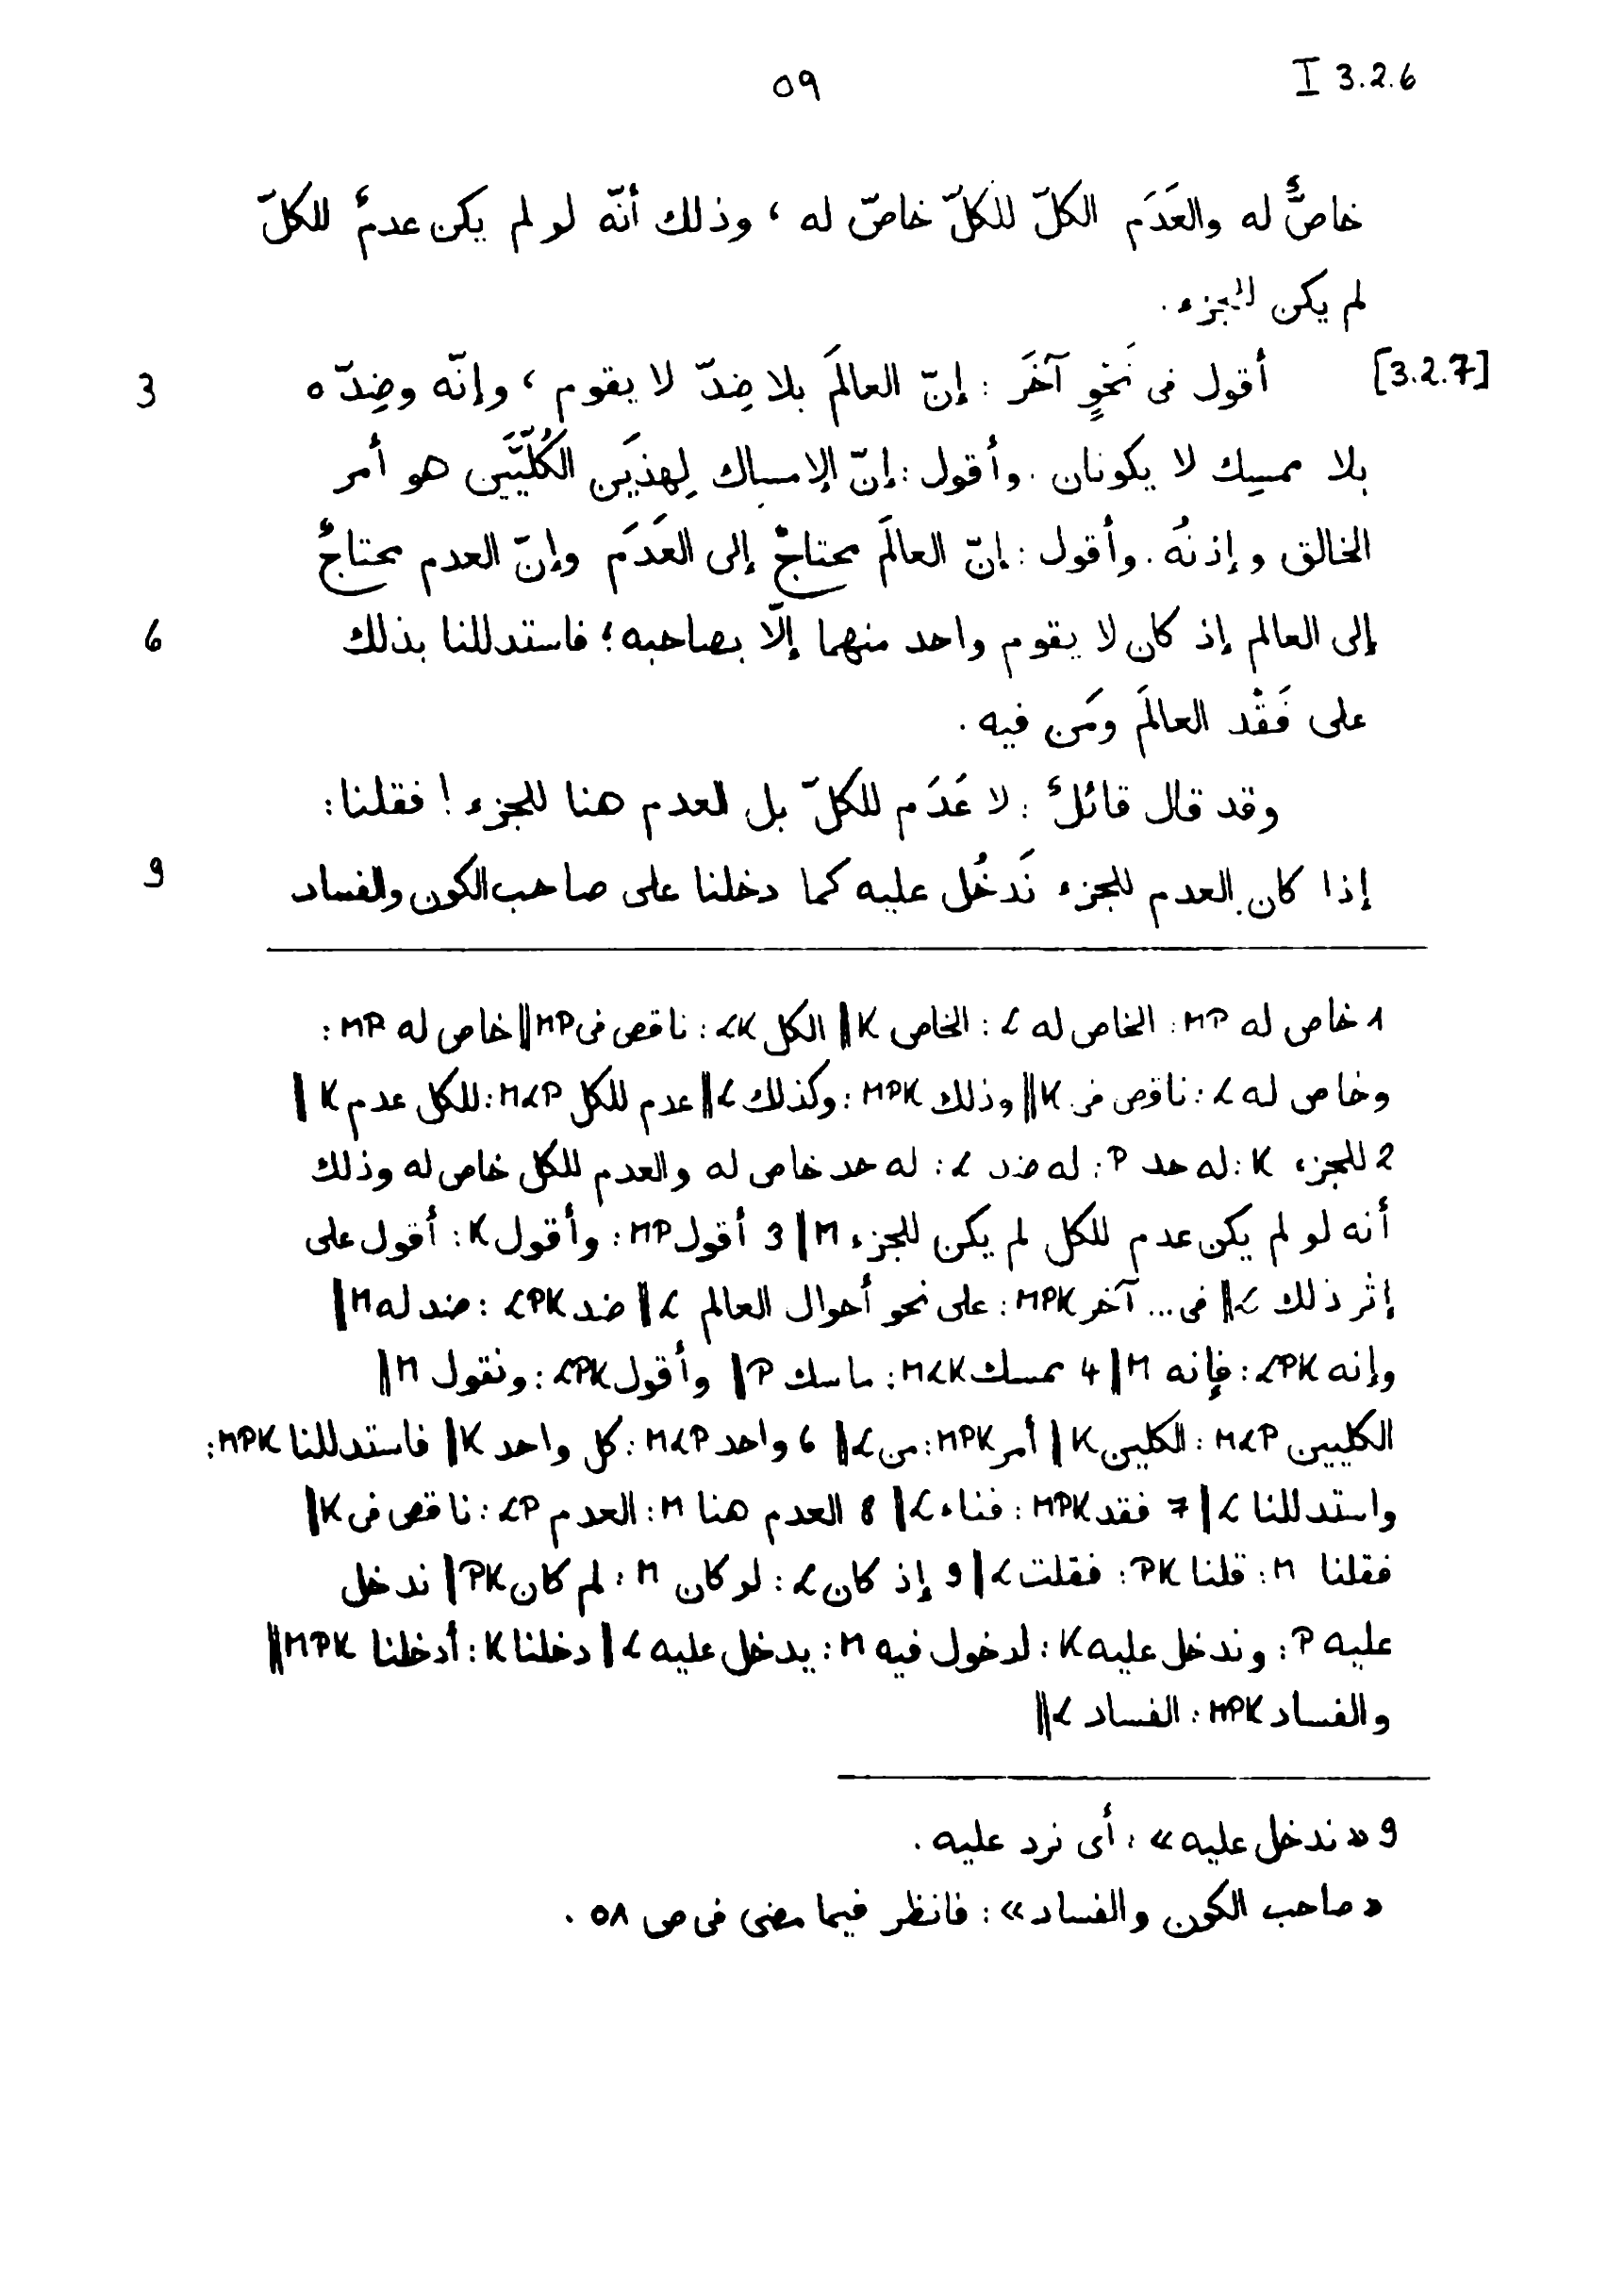 I 3.2.6
٥٩
خاصٌّ له والعَدَم الكلّ للكلّ خاصّ له ، وذلك أنّه لو لم يكن عدمٌ للكلّ
لم يكن للجزء .
[3.2.7] أقول فى نَحْوٍ آخَر : إنّ العالَم بلا ضِدّ لا يقوم ، وإنّه وضِدّه 3
بلا ممسِك لا يكونان . وأقول : إنّ الإمساك لِهذَين الكُلّيَّين هو أمر
الخالق وإذنُه . وأقول : إنّ العالَم محتاجٌ إلى العَدَم وإنّ العدم محتاجٌ
إلى العالم إذ كان لا يقوم واحد منهما إلّا بصاحبه ؛ فاستدللنا بذلك 6
على فَقْد العالَم ومَن فيه .
وقد قال قائلٌ : لا عَدَم للكلّ بل العدم هنا للجزء ! فقلنا :
إذا كان العدم للجزء نَدخُل عليه كما دخلنا على صاحب الكون والفساد 9
1 خاص له MP : الخاص له L : الخاص K || الكل LK : ناقص فى MP || خاص له MP :
وخاص له L : ناقص فى K || وذلك MPK : وكذلك L || عدم للكل MLP : للكل عدم K ||
2 للجزء K : له حد P : له ضد L : له حد خاص له والعدم للكل خاص له وذلك
أنه لو لم يكن عدم للكل لم يكن للجزء M || 3 أقول MP : وأقول K : أقول على
إثر ذلك L || فى ... آخر MPK : على نحو أحوال العالم L || ضد LPK : ضد له M ||
وإنه LPK : فإنه M || 4 ممسك MLK : ماسك P || وأقول LPK : ونقول M ||
الكليين MLP : الكلين K || أمر MPK : من L || 6 واحد MLP : كل واحد K || فاستدللنا MPK :
واستدللنا L || 7 فقد MPK : فناء L || 8 العدم هنا M : العدم LP : ناقص فى K ||
فقلنا M : قلنا PK : فقلت L || 9 إذ كان L : لو كان M : لم كان PK || ندخل
عليه P : وندخل عليه K : لدخول فيه M : يدخل عليه L || دخلنا K : أدخلنا MPK ||
والفساد MPK : الفساد L ||
9 « ندخل عليه » : أى نرد عليه .
« صاحب الكون والفساد » : فانظر فيما مضى فى ص ٥٨ .